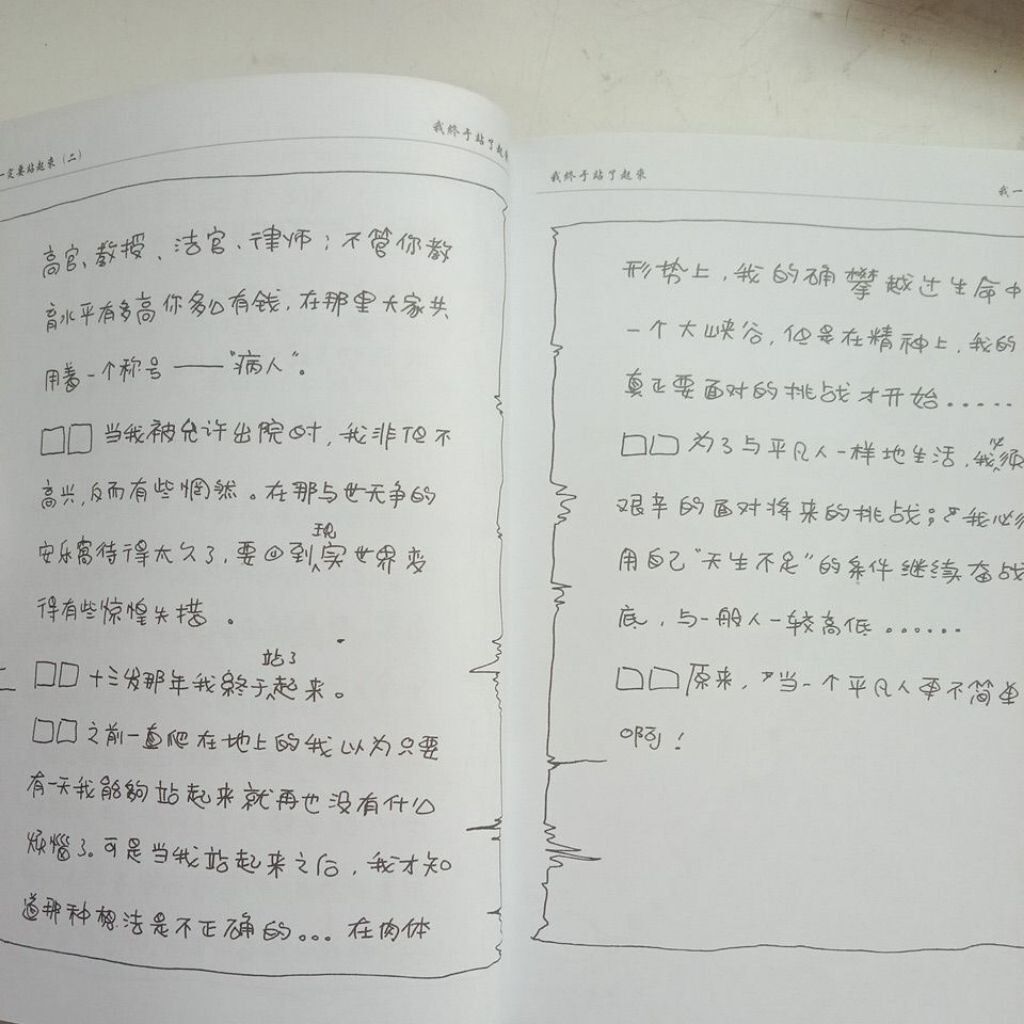 一定要站起来（二）
我终于站了起来
高官、教授、法官、律师；不管你教
育水平有多高你多么有钱，在那里大家共
用着一个称号——“病人”。
□□当我被允许出院时，我非但不
高兴，反而有些惘然。在那与世无争的
安乐窝待得太久了，要回到现实世界变
得有些惊惶失措。
□□十三岁那年我终于站了起来。
□□之前一直爬在地上的我以为只要
有一天我能夠站起来就再也没有什么
烦惱了。可是当我站起来之后，我才知
道那种想法是不正确的...在肉体
我终于站了起来
我一
形势上，我的确攀越过生命中
一个大峡谷，但是在精神上，我的
真正要面对的挑战才开始.....
□□为了与平凡人一样地生活，我必须
艰辛的面对将来的挑战；我必须
用自己“天生不足”的条件继续奋战
底，与一般人一较高低......
□□原来，当一个平凡人更不简单
啊！